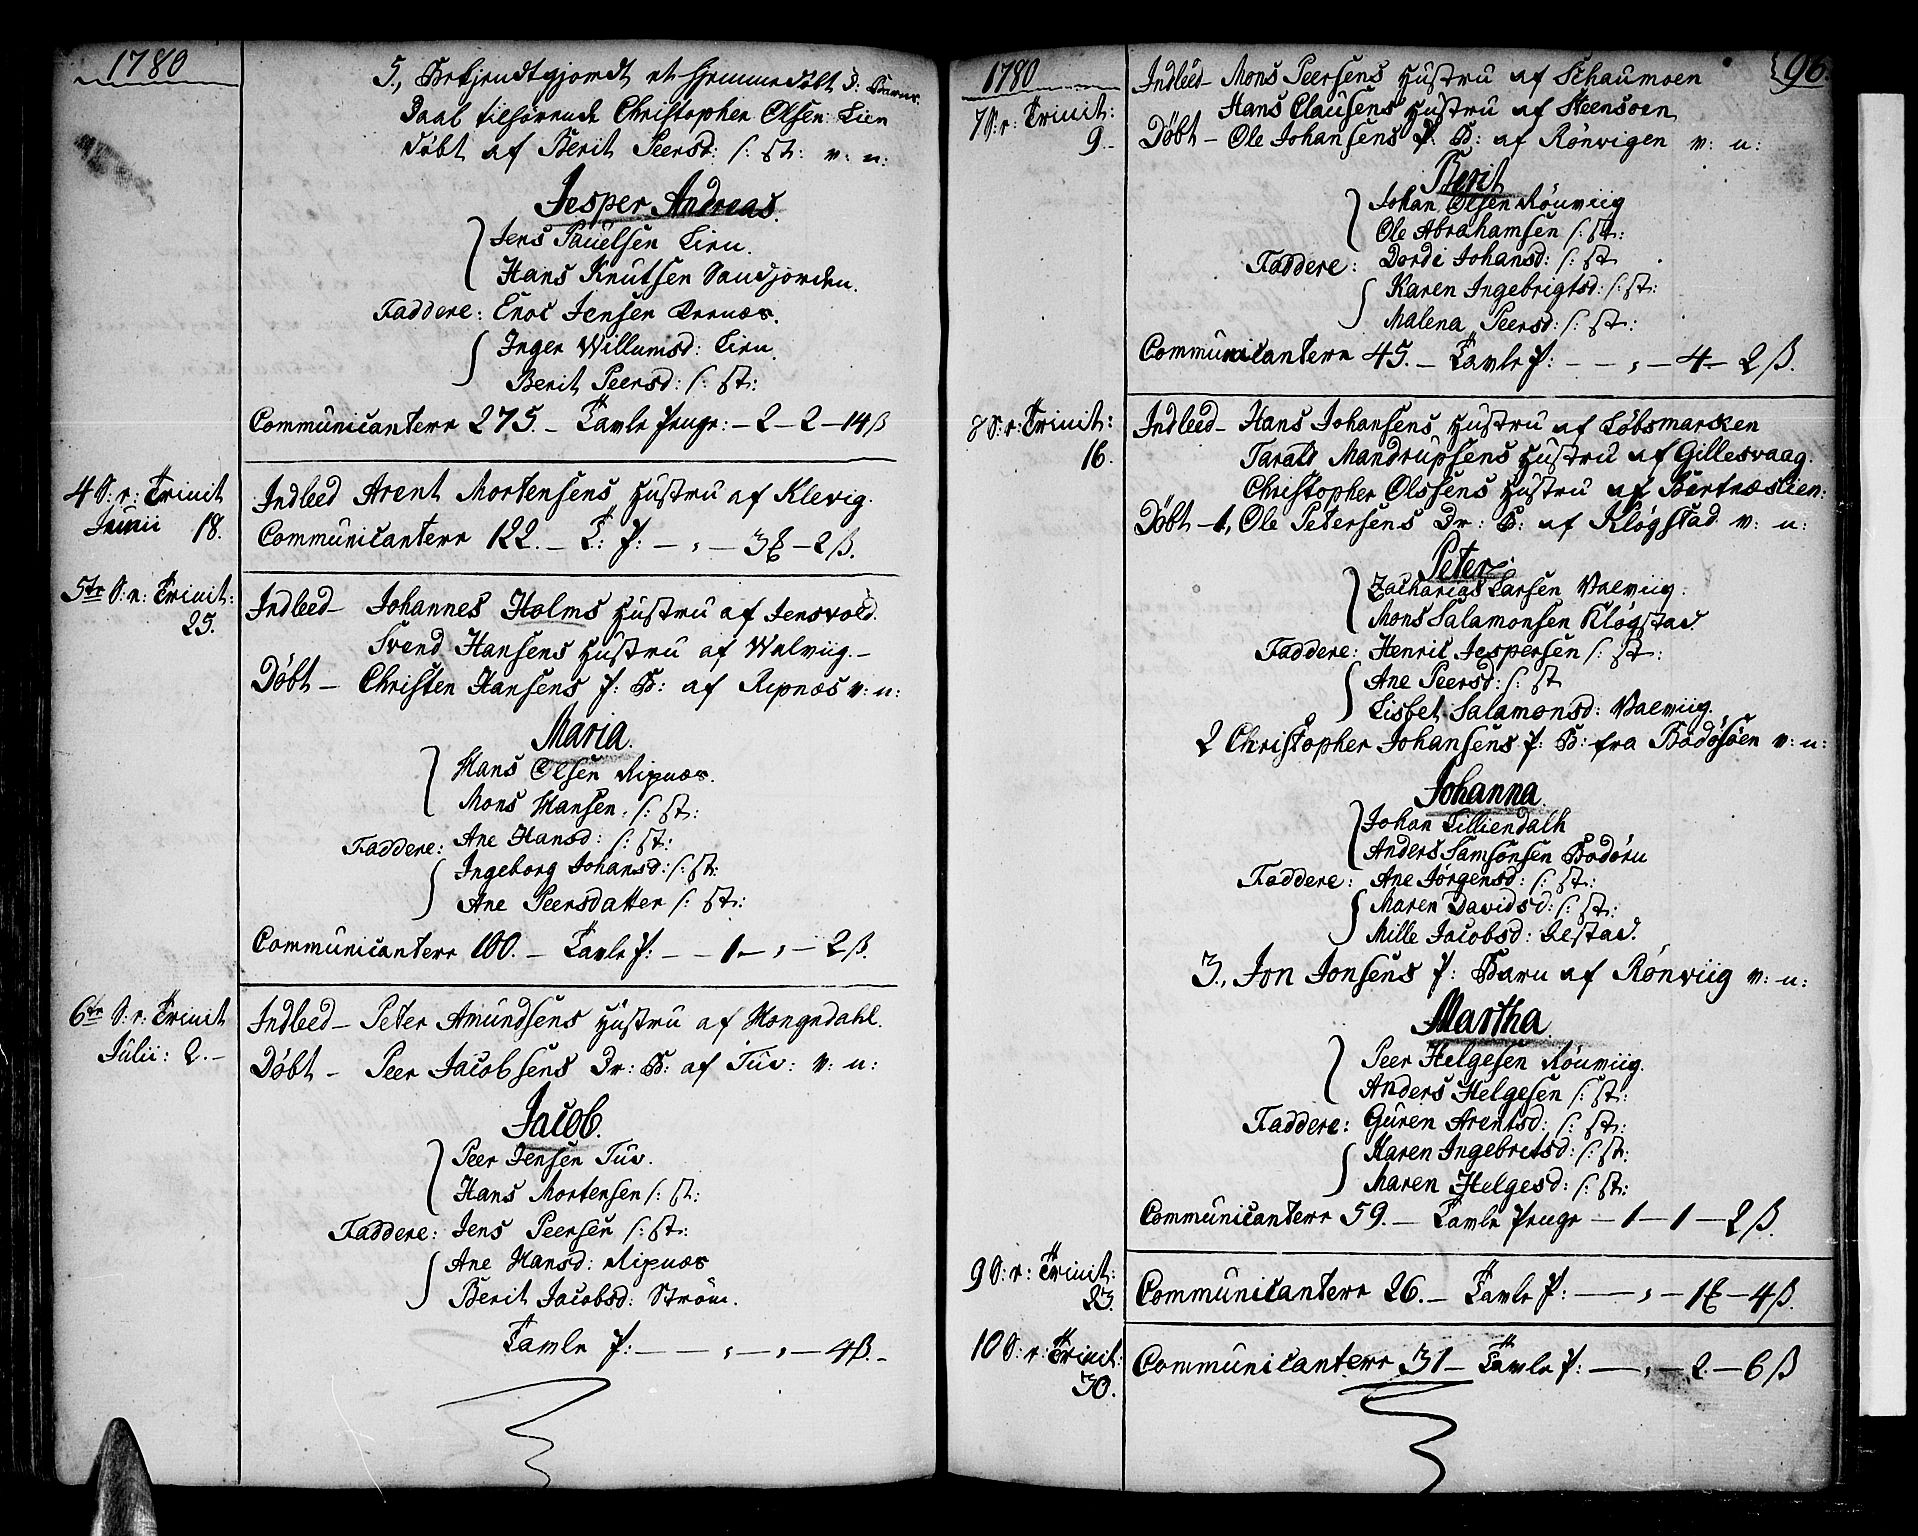 1780
5., Bekjendtgjordt et hjemme døbt D: Barns
Daab tilhørende Christopher Olsen Lien
døbt af Berit Peersd: /: st: v: n:
Jesper Andreas.
Jens Pauelsen Lien.
Hans Knutsen Sandjorden.
Faddere: Enoc Jensen
Inger Willumsd: Lien.
Berit Peersd: /: st:
Communicantere 275. — Tavle Penge: — 2 — 2 — 14 ß
4 S: e: Trinit
Junii 18.
Indleed Arent Mortensens Hustru af Klevig.
Communicantere 122. — T: P: — „ — 3 — 2 ß.
5te S: e: Trinit:
25.
Indleed — Johannes Holms Hustru af Jensvold.
Svend Hansens Hustru af Walviig. —
Døbt — Christen Hansens P: B: af Ripnæs v: n:
Maria.
Hans Olsen Ripnæs.
Mons Hansen. /: st:
Faddere: Ane Hansd: /: st:
Ingeborg Johansd: /: st:
Ane Peersdatter /: st:
Communicantere 100. — Tavle P: — — 1 — „ — 2 ß.
6te S: e: Trinit
Julii: 2. —
Indleed — Peter Amundsens Hustru af Hongedahl.
Døbt — Peer Jacobsens Dr: B: af Tuv: v: n:
Jacob.
Peer Jensen Tuv.
Hans Mortensen /: st:
Faddere: Jens Peersen /: st:
Ane Hansd: Ripnæs
Berit Jacobsd: Strøm.
Tavle P: — — „ — „ — 4 ß. —
1780
96.
7 S: e: Trinit:
9. —
Indleed — Mons Peersens Hustru af Schaumoen
Hans Clausens Hustru af Steensoen
Døbt — Ole Johansens P: B: af Rønvigen v: n:
Berit
Johan Olsen Rønviig
Ole Abrahamsen /: st:
Faddere: Dordi Johansd: /: st
Karen Ingebrigtsd: /: st:
Malena Peersd: /: st:
Communicantere 45. — Tavle P: — — „ — 4 — 2 ß.
8 S: e: Trinit:
16.
Indleed — Hans Johansens Hustru af Løbsmarken
Tarald Mandrupsens Hustru af Gillesvaag.
Christopher Olssens Hustru af Bertnæslien:
Døbt — 1, Ole Petersens Dr: B: af Kløgstad v: n:
Peter
Zacharias Larsen Valviig:
Mons Salamonsen Kløgstad.
Faddere: Henric Jespersen /: st:
Ane Peersd: /: st
Lisbet Salamonsd: Valviig.
2 Christopher Johansens P: B: fra Bodøsøen v: n:
Johanna.
Johan Lilliendalh
Anders Samsonsen Bodøen
Faddere: Ane Jørgensd: /: st:
Maren Davidsd: /: st:
Mille Jacobsd: Jestad.
3., Jon Jonsens P: Barn af Rønviig v: n:
Martha.
Peer Helgesen Rønviig.
Anders Helgesen /: st:
Faddere: Guren Arentsd: /: st:
Karen Ingebretsd: /: st:
Maren Helgesd: /: st:
Communicantere 59. — Tavle Penge — 1 — 1 — 2 ß.
9 S: e: Trinit:
23.
Communicantere 26. — Tavle P: — — „ — 1 — 4 ß.
10 S: e: Trinit:
30.
Communicantere 31 — Tavle P: — — „ — 2 — 6 ß